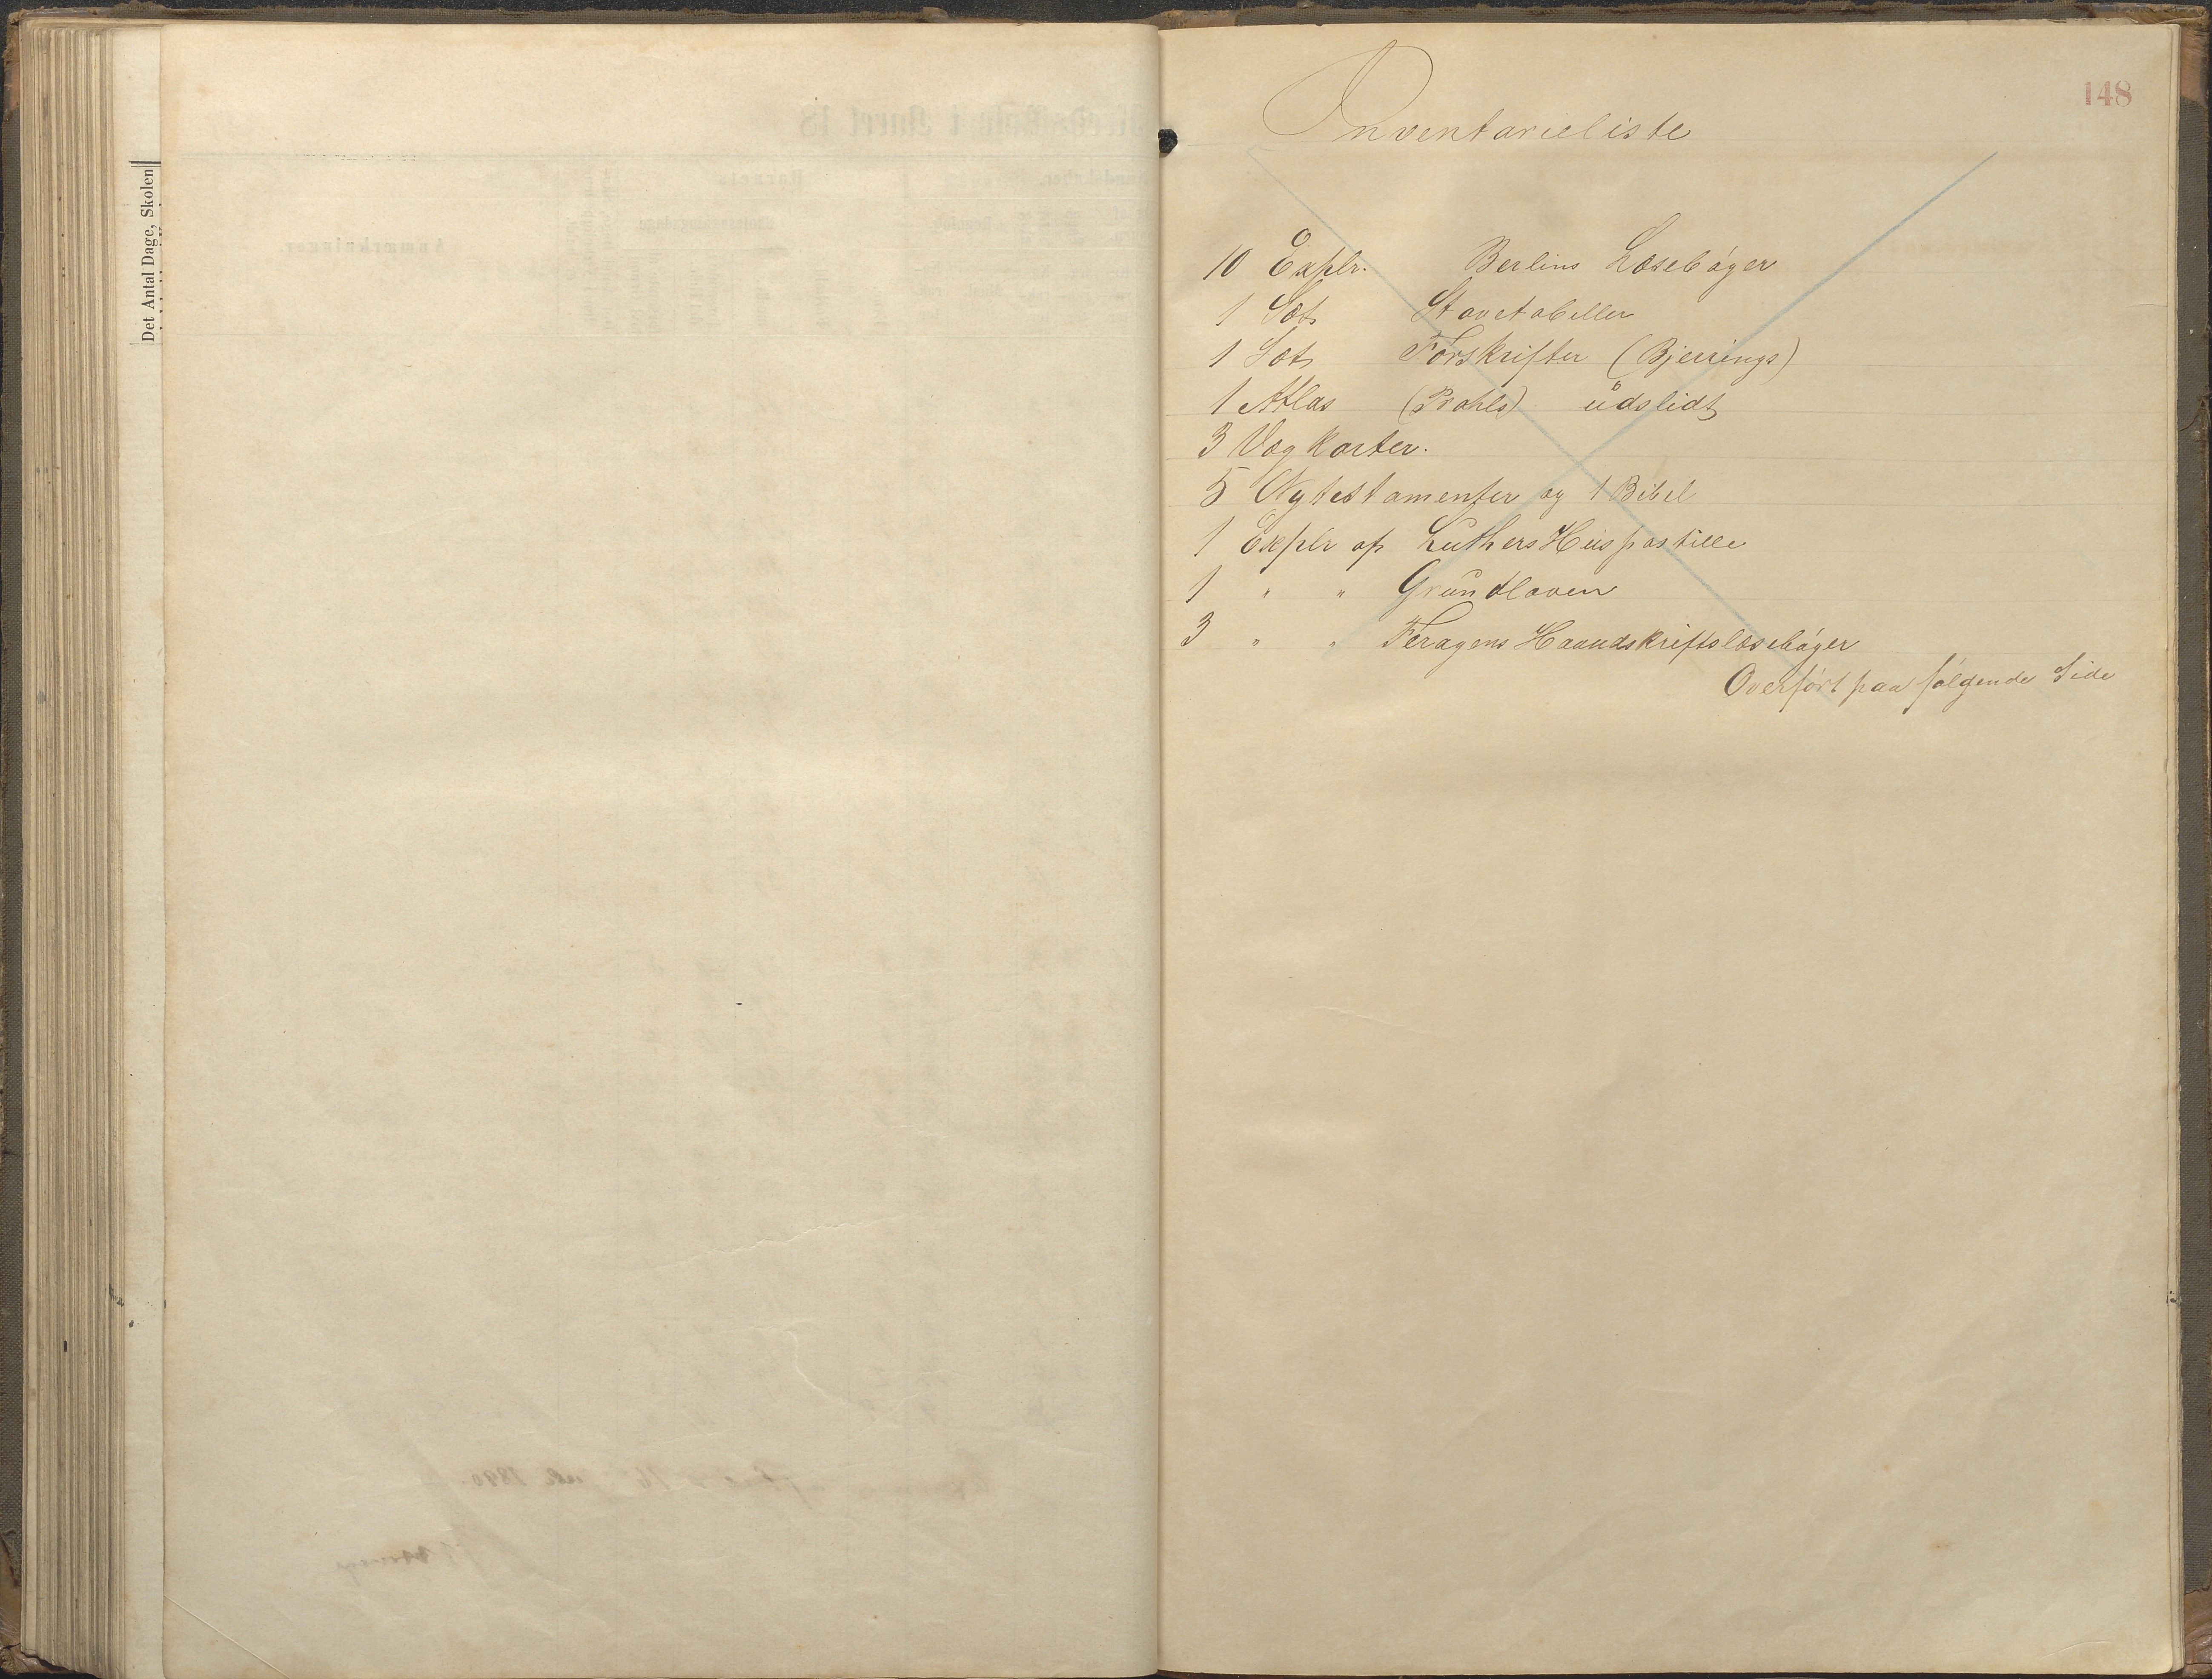 Det Antal Dage, Skolen
148
Inventarieliste
10 Explr. Berlins Læsebøger
1 Sæt Stavetabeller
1 Sæt Forskrifter (Bjerrings)
1 Atlas (Prahls) udslidt
3 Vægkarter.
5 Nytestamenter og 1 Bibel
1 Explr af Luthers Huspostille
1 " " Grundloven
3 " " Feragens Haandskriftslæsebøger
Overført paa følgende Side